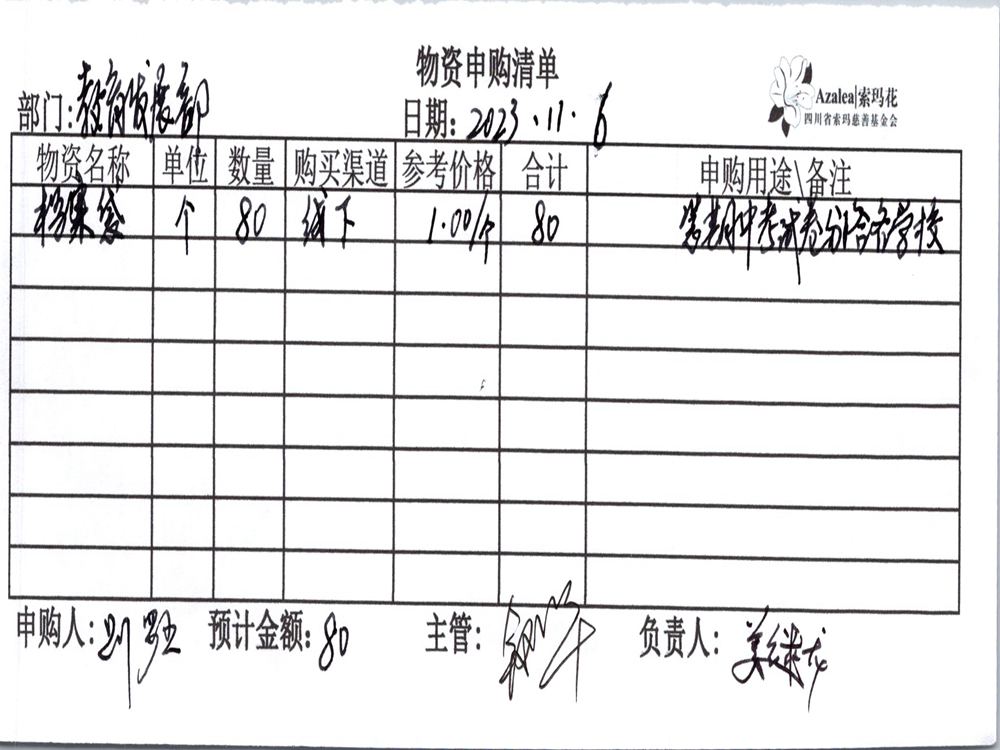 物资申购清单
Azalea|索玛花
四川省索玛慈善基金会
部门:教育发展部 日期: 2023.11.6
物资名称 单位 数量 购买渠道 参考价格 合计 申购用途\备注
档案袋 个 80 线下 1.00/个 80 期中考试卷分给各学校
申购人: 刘 预计金额: 80 主管: 负责人: